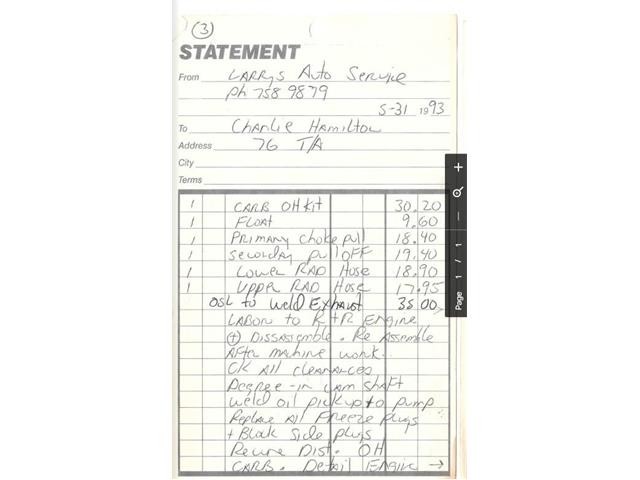 (3)
STATEMENT
From LARRYS Auto Service
Ph 758 9879
5-31 1993
To Charlie Hamilton
Address 76 T/A
City
Terms
1 CARB OH Kit 30.20
1 FLOAT 9.60
1 Primary choke pull 18.40
1 seconday pull OFF 19.40
1 Lower RAD Hose 18.90
1 Upper RAD Hose 17.95
OSL to Weld EXHAUST 35.00
LABOR to R+R Engine
(+) DISSASSEMBLE. Re Assemble
AFter machine work.
CK All cleARANCes
Degree-in cam shaft
Weld oil pickup to pump
Replace All Freeze plugs
+ Block Side plugs
Recurve Dist. OH
CARB. Detail Engine →
Page 1 / 1